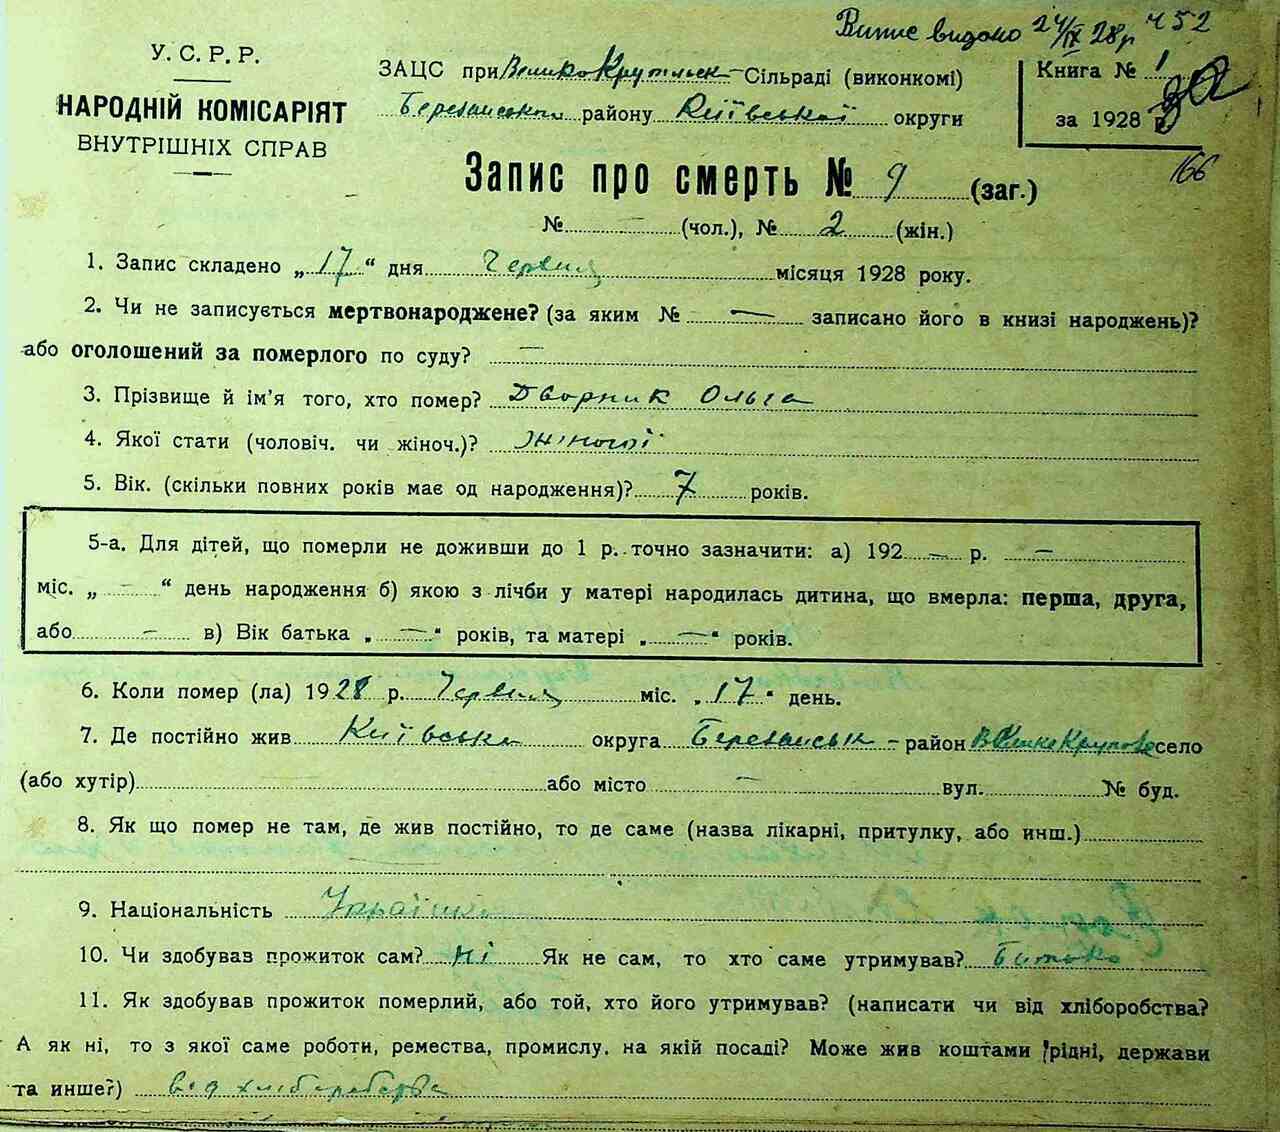 Витис видано 24/IX 28р ч 52
У.С.Р.Р.
НАРОДНІЙ КОМІСАРІЯТ
ВНУТРІШНІХ СПРАВ
ЗАЦС при Велико Крупільск - Сільраді (виконкомі)
Березанськом району Київської округи
Книга № 1
за 1928 р.
166
Запис про смерть № 9 (заг.)
№ — (чол.), № 2 (жін.)
1. Запис складено „17“ дня Червня місяця 1928 року.
2. Чи не записується мертвонароджене? (за яким № — записано його в книзі народжень)?
або оголошений за померлого по суду? —
3. Прізвище й ім'я того, хто помер? Дворник Ольга
4. Якої стати (чоловіч. чи жіноч.)? жіночої
5. Вік. (скільки повних років має од народження)? 7 років.
5-а. Для дітей, що померли не доживши до 1 р. точно зазначити: а) 192 — р. —
міс. „ — “ день народження б) якою з лічби у матері народилась дитина, що вмерла: перша, друга,
або — в) Вік батька „ — “ років, та матері „ — “ років.
6. Коли помер (ла) 1928 р. Червня міс. „17“ день.
7. Де постійно жив Київська округа Березанськ - район село
(або хутір) або місто — вул. № буд.
8. Як що помер не там, де жив постійно, то де саме (назва лікарні, притулку, або инш.)
9. Національність Українка
10. Чи здобував прожиток сам? ні Як не сам, то хто саме утримував? Батько
11. Як здобував прожиток померлий, або той, хто його утримував? (написати чи від хліборобства?
А як ні, то з якої саме роботи, ремества, промислу, на якій посаді? Може жив коштами рідні, держави
та инше?) від хліборобства